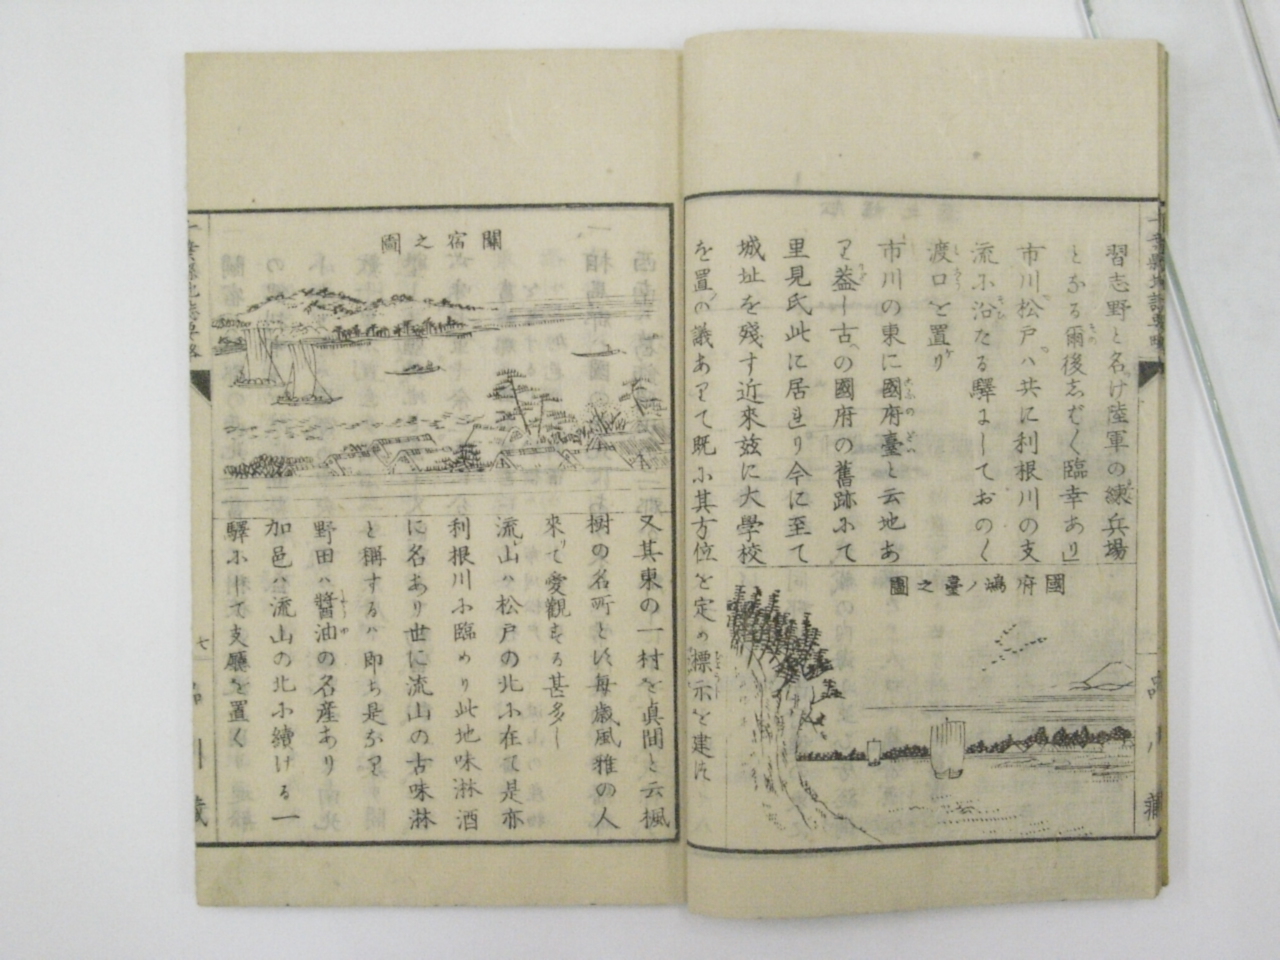 習志野と名け陸軍の練兵場
とある爾後志ばく臨幸あり」
市川松戸ハ共に利根川の支
流に沿たる驛にしておのく
渡口を置り
市川の東に國府臺と云地あ
り蓋し古の國府の舊跡にて
里見氏此に居れり今に至て
城址を殘す近來玆に大學校
を置の議ありて既に其方位を定め標示を建つ
國府鴻ノ臺之圖
關宿之圖
又其東の一村を真間と云楓
樹の名所とし毎歳風雅の人
來りて愛觀する甚多し
流山ハ松戸の北に在て是亦
利根川に臨めり此地味淋酒
に名あり世に流山の古味淋
と稱するハ即ち是なり
野田ハ醬油の名産あり
加邑ハ流山の北に續ける一
驛にして支廳を置く
七